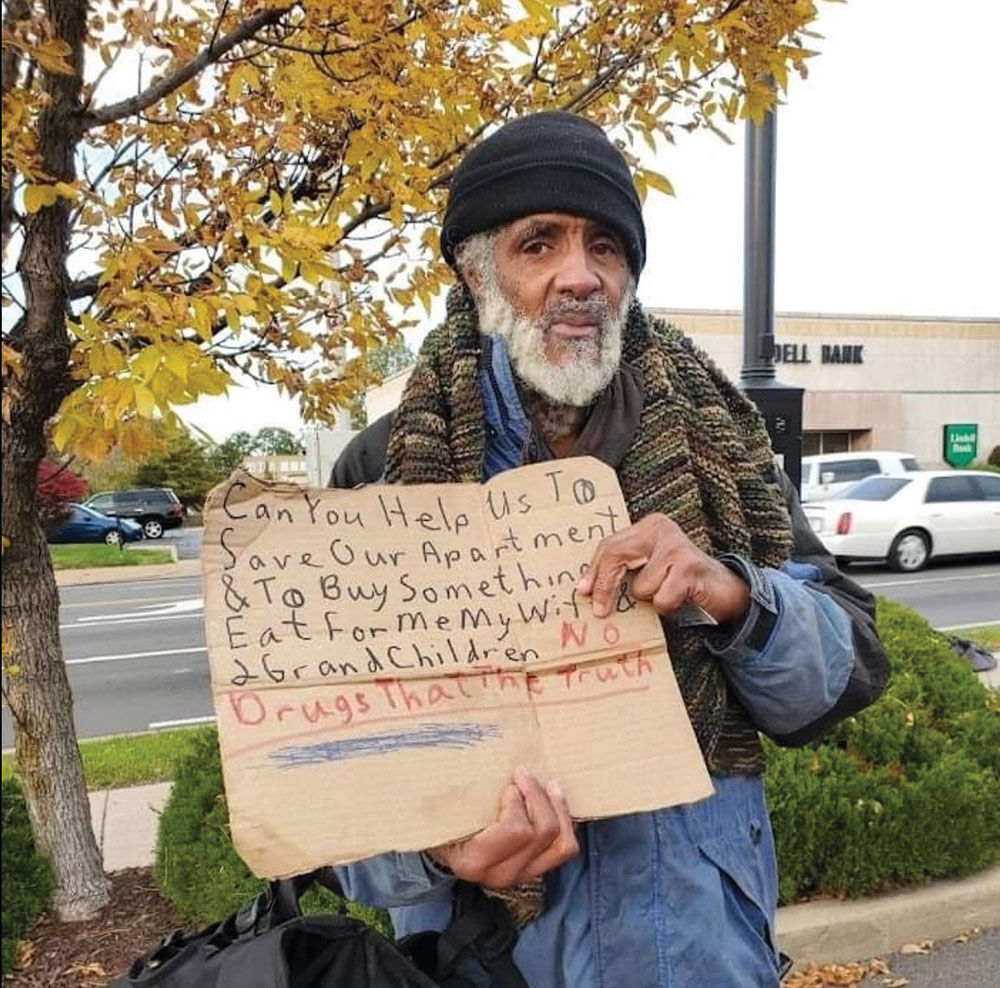 Can You Help Us To
Save Our Apartment
& To Buy Something
Eat For Me My Wife &
2 GrandChildren No
Drugs That The Truth
DELL BANK
Lindell
Bank